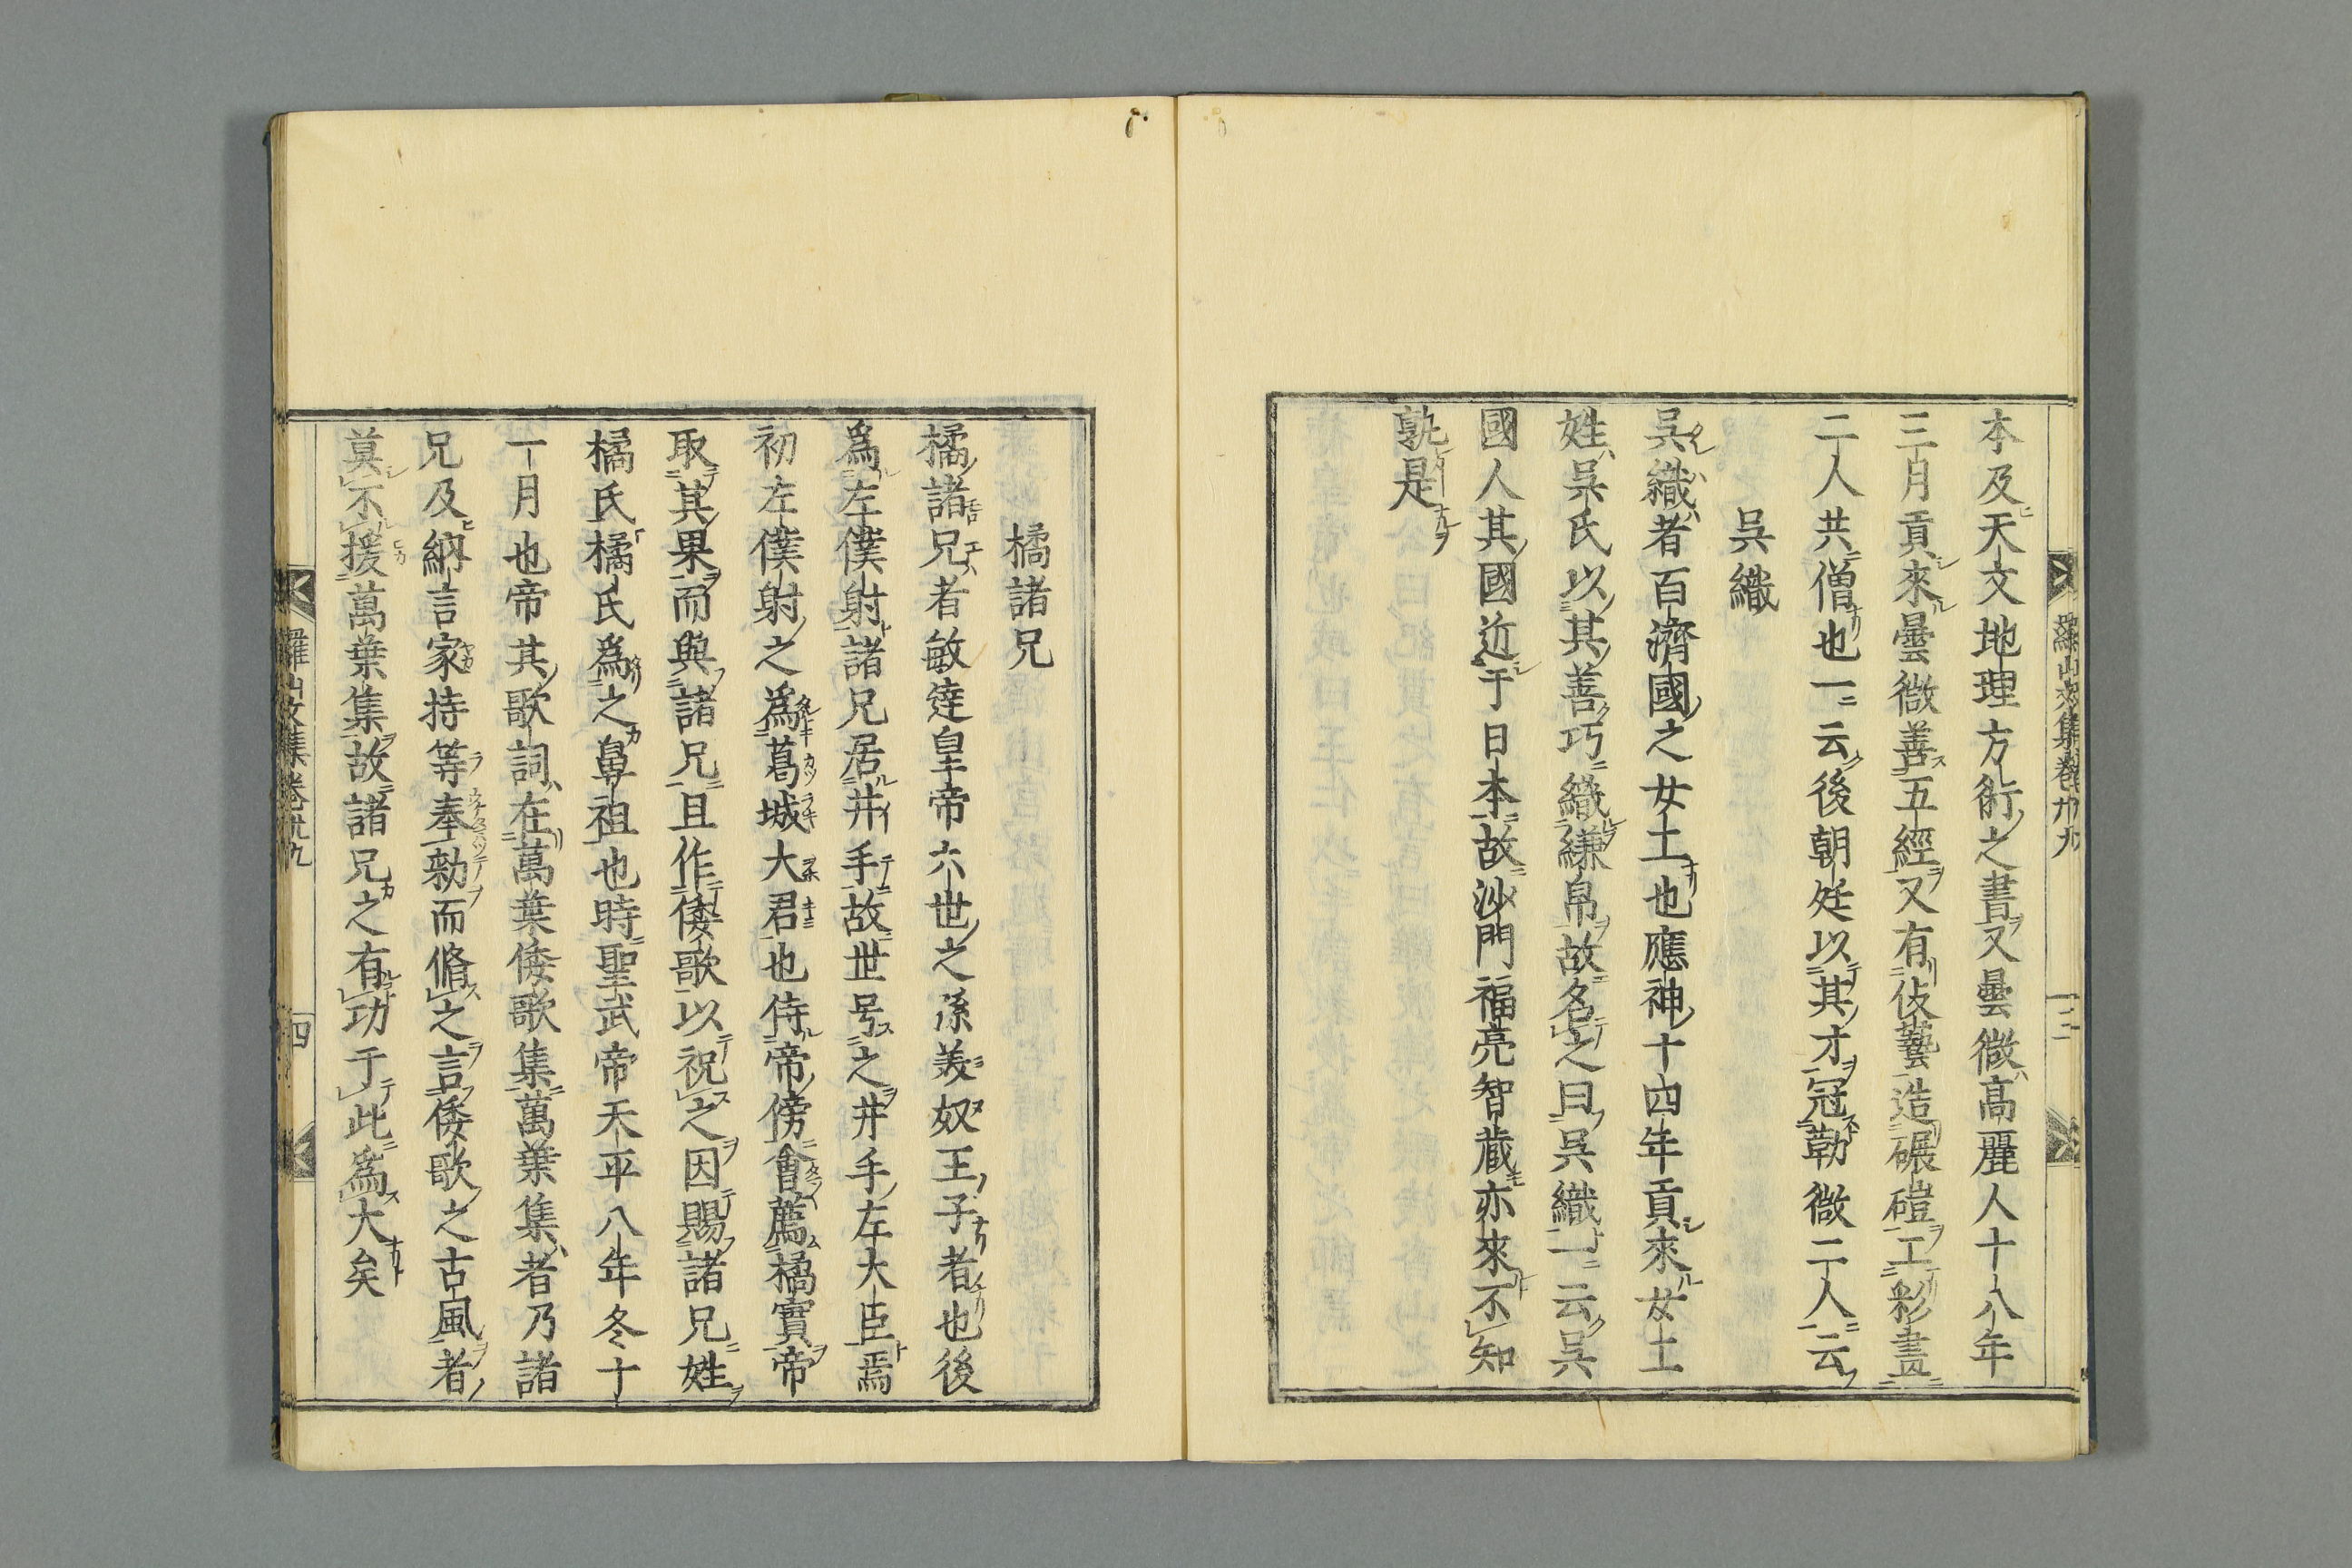 羅山文集卷卅九
三
本及天文地理方術之書又曇微高麗人十八年
三月貢來曇微善五經又有伎藝造碾磑工彩畫
二人共僧也一云後朝廷以其才冠勒微二人云
吳織
吳織者百濟國之女土也應神十四年貢來女土
姓吳氏以其善巧織縑帛故名之曰吳織一云吳
國人其國近于日本故沙門福亮智藏亦來不知
孰是
橘諸兄
橘諸兄者敏達皇帝六世之孫美奴王子者也後
為左僕射諸兄居井手故世号之井手左大臣焉
初左僕射之為葛城大君也侍帝傍會薦橘實帝
取其果而與諸兄且作倭歌以祝之因賜諸兄姓
橘氏橘氏為之鼻祖也時聖武帝天平八年冬十
一月也帝其歌詞在萬葉倭歌集萬葉集者乃諸
兄及納言家持等奉勅而脩之言倭歌之古風者
莫不援萬葉集故諸兄之有功于此為大矣
羅山文集卷卅九
四